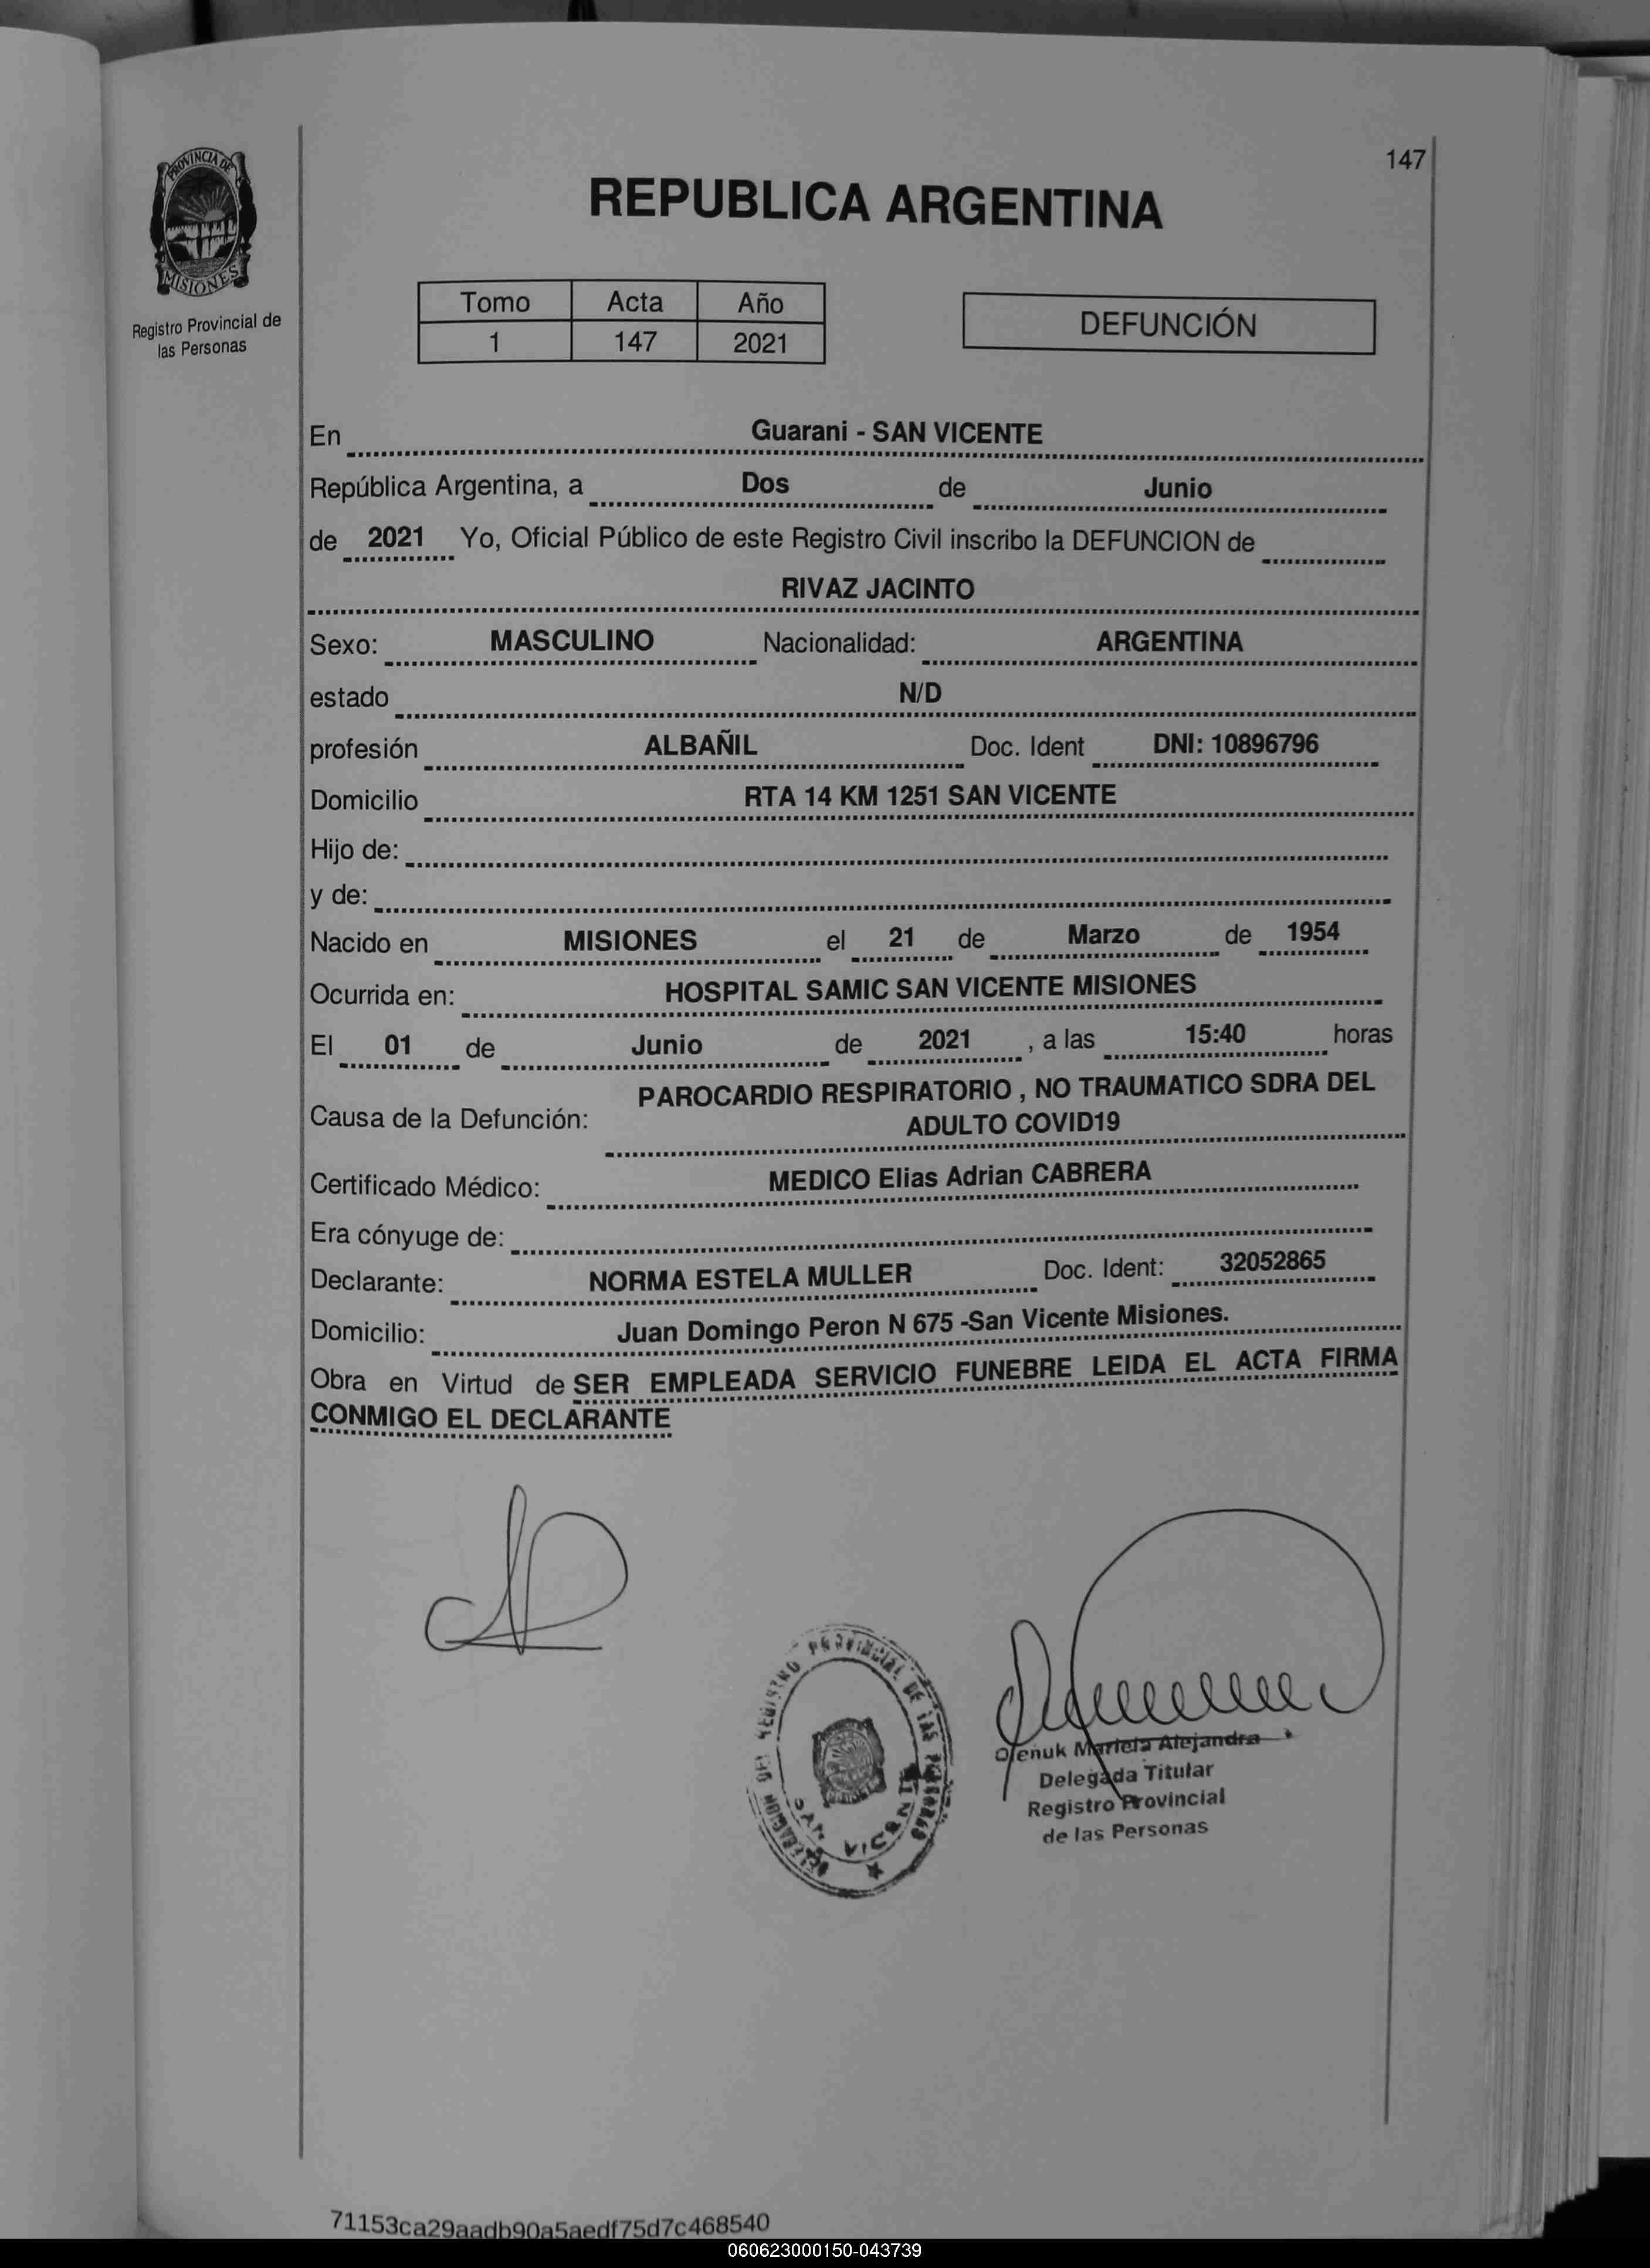 147
PROVINCIA DE
MISIONES
Registro Provincial de
las Personas
REPUBLICA ARGENTINA
Tomo Acta Año
1 147 2021
DEFUNCIÓN
En Guarani - SAN VICENTE
República Argentina, a Dos de Junio
de 2021 Yo, Oficial Público de este Registro Civil inscribo la DEFUNCION de
RIVAZ JACINTO
Sexo: MASCULINO Nacionalidad: ARGENTINA
estado N/D
profesión ALBAÑIL Doc. Ident DNI: 10896796
Domicilio RTA 14 KM 1251 SAN VICENTE
Hijo de:
y de:
Nacido en MISIONES el 21 de Marzo de 1954
Ocurrida en: HOSPITAL SAMIC SAN VICENTE MISIONES
El 01 de Junio de 2021 , a las 15:40 horas
Causa de la Defunción: PAROCARDIO RESPIRATORIO , NO TRAUMATICO SDRA DEL
ADULTO COVID19
Certificado Médico: MEDICO Elias Adrian CABRERA
Era cónyuge de:
Declarante: NORMA ESTELA MULLER Doc. Ident: 32052865
Domicilio: Juan Domingo Peron N 675 -San Vicente Misiones.
Obra en Virtud de SER EMPLEADA SERVICIO FUNEBRE LEIDA EL ACTA FIRMA
CONMIGO EL DECLARANTE
DELEGACION DEL REGISTRO PROVINCIAL DE LAS PERSONAS
SAN VICENTE
Olenuk Mariela Alejandra
Delegada Titular
Registro Provincial
de las Personas
71153ca29aadb90a5aedf75d7c468540
060623000150-043739